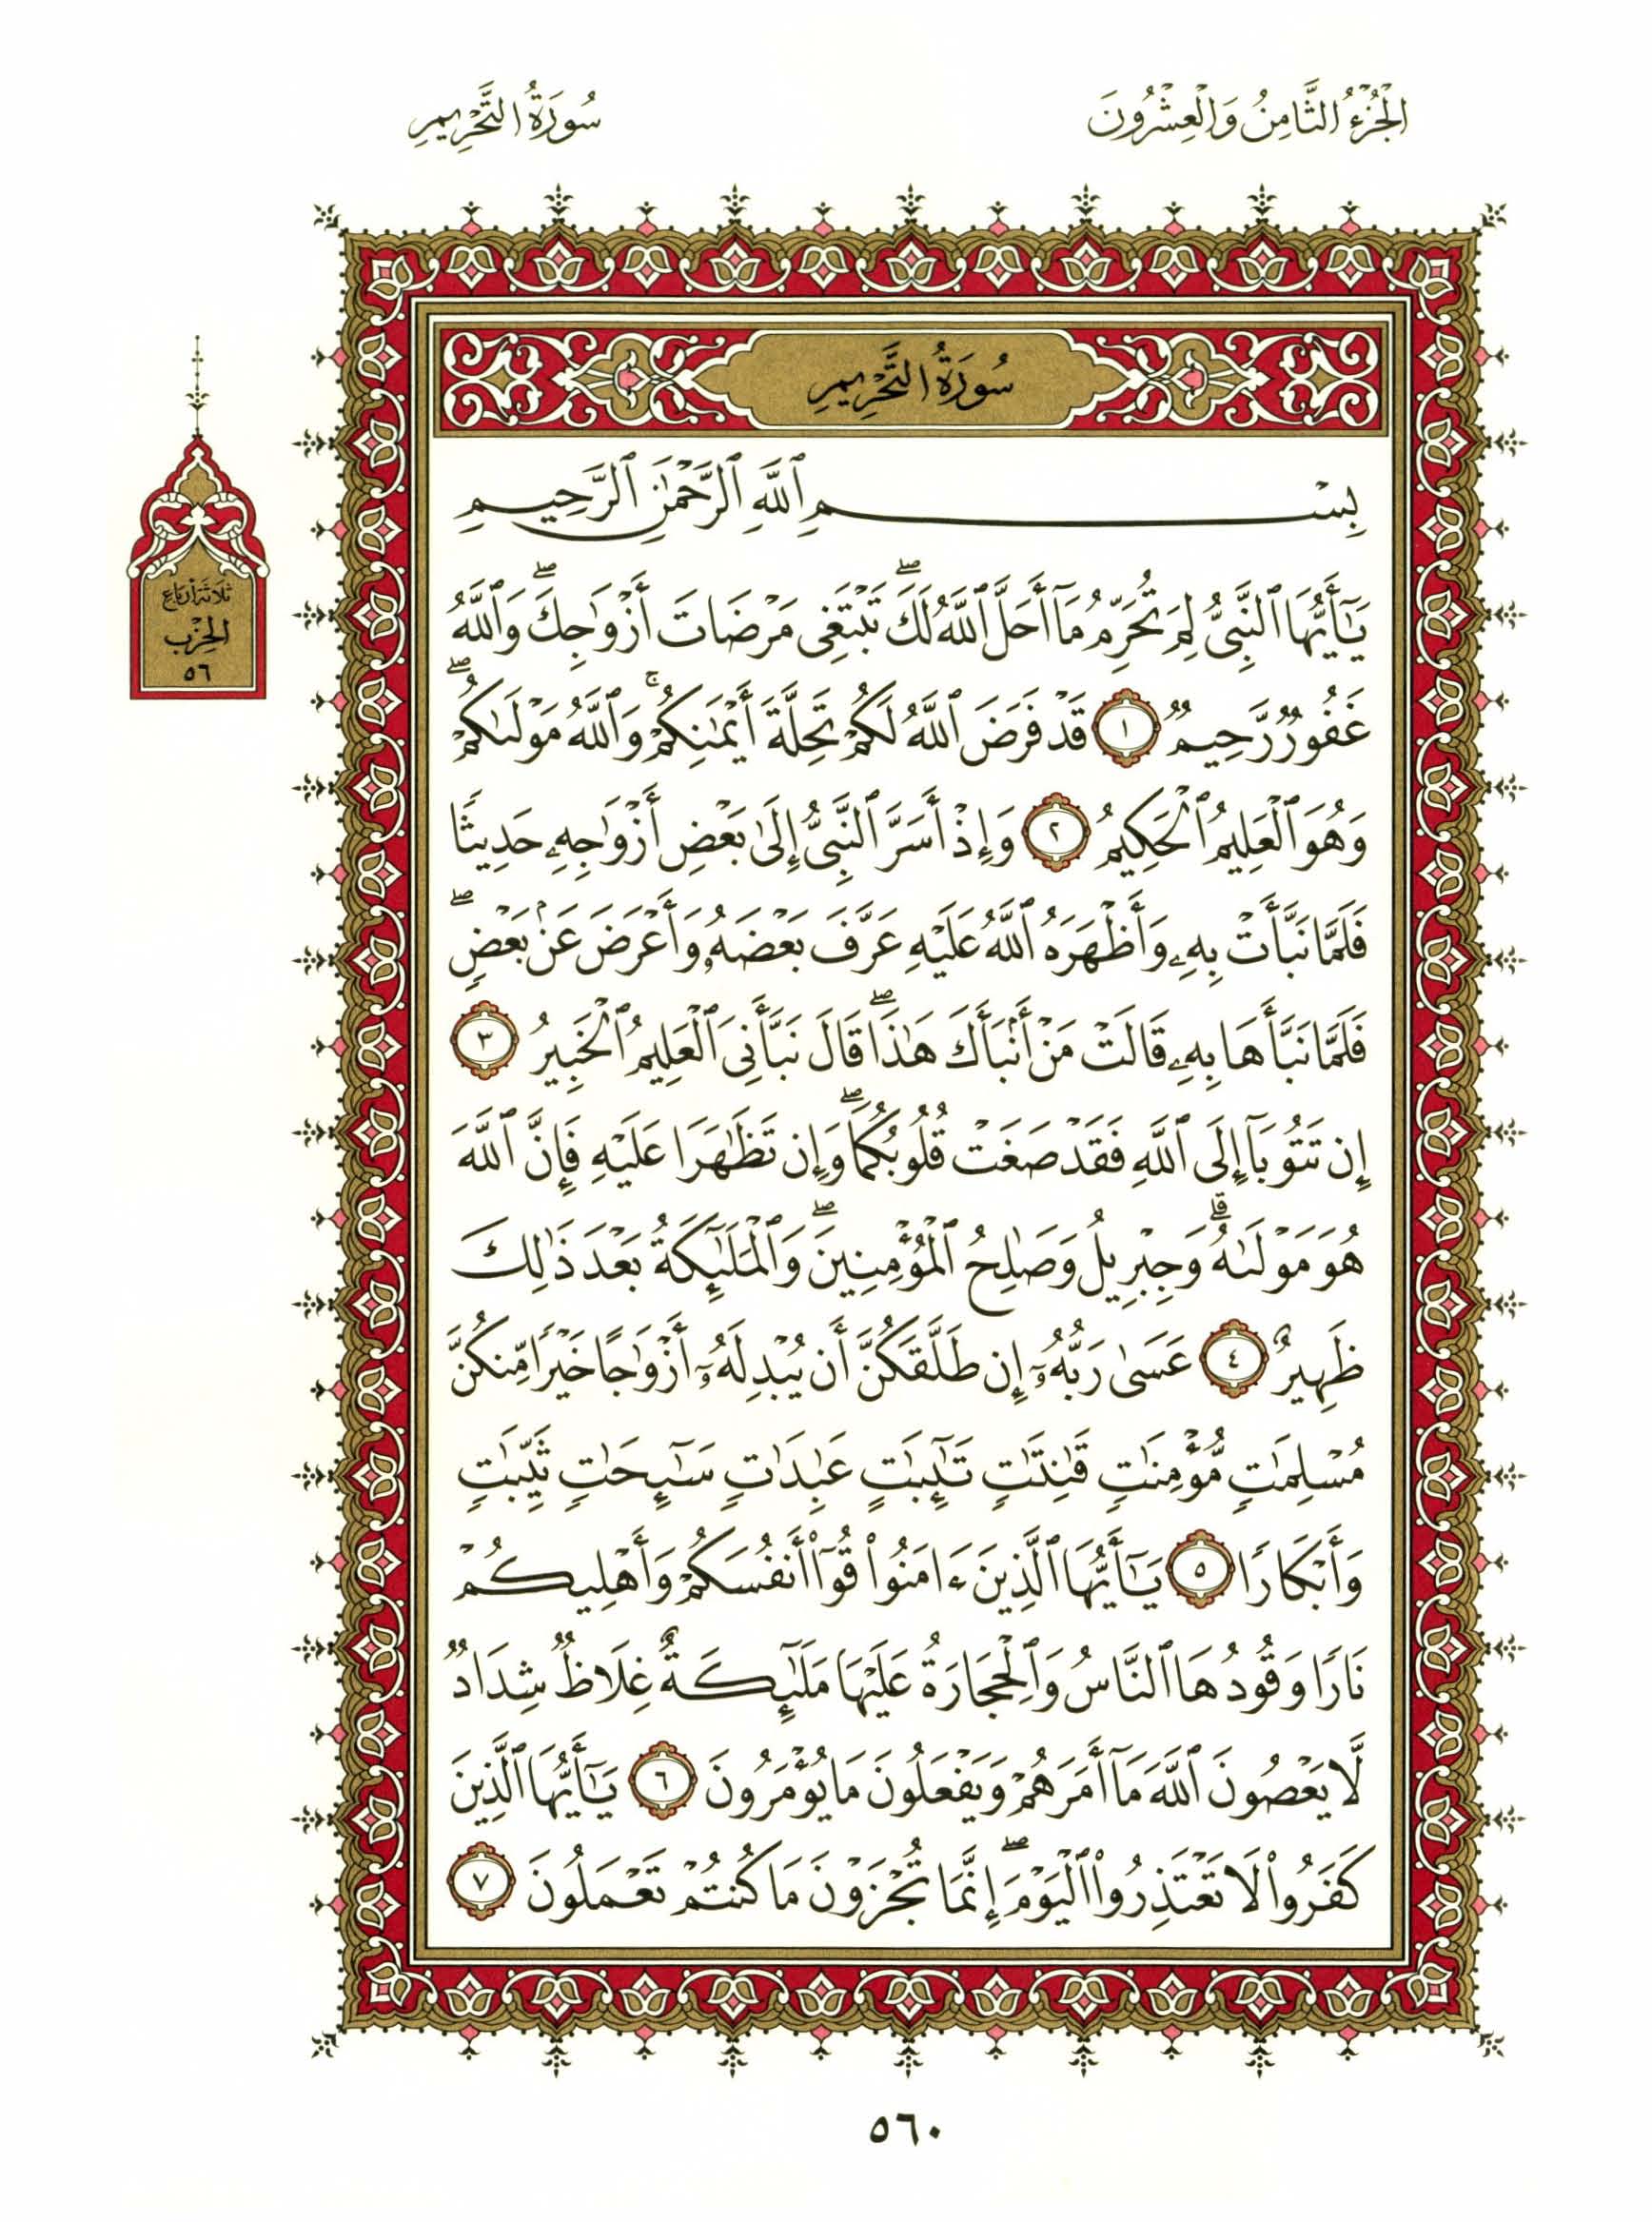 الْجُزْءُ الثَّامِنُ وَالْعِشْرُونَ
سُورَةُ التَّحْرِيمِ
سُورَةُ التَّحْرِيمِ
بِسْمِ ٱللَّهِ ٱلرَّحْمَٰنِ ٱلرَّحِيمِ
يَٰٓأَيُّهَا ٱلنَّبِىُّ لِمَ تُحَرِّمُ مَآ أَحَلَّ ٱللَّهُ لَكَ ۖ تَبْتَغِى مَرْضَاتَ أَزْوَٰجِكَ ۖ وَٱللَّهُ
غَفُورٌ رَّحِيمٌ ١ قَدْ فَرَضَ ٱللَّهُ لَكُمْ تَحِلَّةَ أَيْمَٰنِكُمْ ۚ وَٱللَّهُ مَوْلَىٰكُمْ ۖ
وَهُوَ ٱلْعَلِيمُ ٱلْحَكِيمُ ٢ وَإِذْ أَسَرَّ ٱلنَّبِىُّ إِلَىٰ بَعْضِ أَزْوَٰجِهِۦ حَدِيثًا
فَلَمَّا نَبَّأَتْ بِهِۦ وَأَظْهَرَهُ ٱللَّهُ عَلَيْهِ عَرَّفَ بَعْضَهُۥ وَأَعْرَضَ عَنۢ بَعْضٍ ۖ
فَلَمَّا نَبَّأَهَا بِهِۦ قَالَتْ مَنْ أَنۢبَأَكَ هَٰذَا ۖ قَالَ نَبَّأَنِىَ ٱلْعَلِيمُ ٱلْخَبِيرُ ٣
إِن تَتُوبَآ إِلَى ٱللَّهِ فَقَدْ صَغَتْ قُلُوبُكُمَا ۖ وَإِن تَظَٰهَرَا عَلَيْهِ فَإِنَّ ٱللَّهَ
هُوَ مَوْلَىٰهُ ۗ وَجِبْرِيلُ وَصَٰلِحُ ٱلْمُؤْمِنِينَ ۖ وَٱلْمَلَٰٓئِكَةُ بَعْدَ ذَٰلِكَ
ظَهِيرٌ ٤ عَسَىٰ رَبُّهُۥٓ إِن طَلَّقَكُنَّ أَن يُبْدِلَهُۥٓ أَزْوَٰجًا خَيْرًا مِّنكُنَّ
مُسْلِمَٰتٍ مُّؤْمِنَٰتٍ قَٰنِتَٰتٍ تَٰٓئِبَٰتٍ عَٰبِدَٰتٍ سَٰٓئِحَٰتٍ ثَيِّبَٰتٍ
وَأَبْكَارًا ٥ يَٰٓأَيُّهَا ٱلَّذِينَ ءَامَنُوا۟ قُوٓا۟ أَنفُسَكُمْ وَأَهْلِيكُمْ
نَارًا وَقُودُهَا ٱلنَّاسُ وَٱلْحِجَارَةُ عَلَيْهَا مَلَٰٓئِكَةٌ غِلَاظٌ شِدَادٌ
لَّا يَعْصُونَ ٱللَّهَ مَآ أَمَرَهُمْ وَيَفْعَلُونَ مَا يُؤْمَرُونَ ٦ يَٰٓأَيُّهَا ٱلَّذِينَ
كَفَرُوا۟ لَا تَعْتَذِرُوا۟ ٱلْيَوْمَ ۖ إِنَّمَا تُجْزَوْنَ مَا كُنتُمْ تَعْمَلُونَ ٧
ثَلَاثَةُ أَرْبَاعِ
الْحِزْب
٥٦
٥٦٠